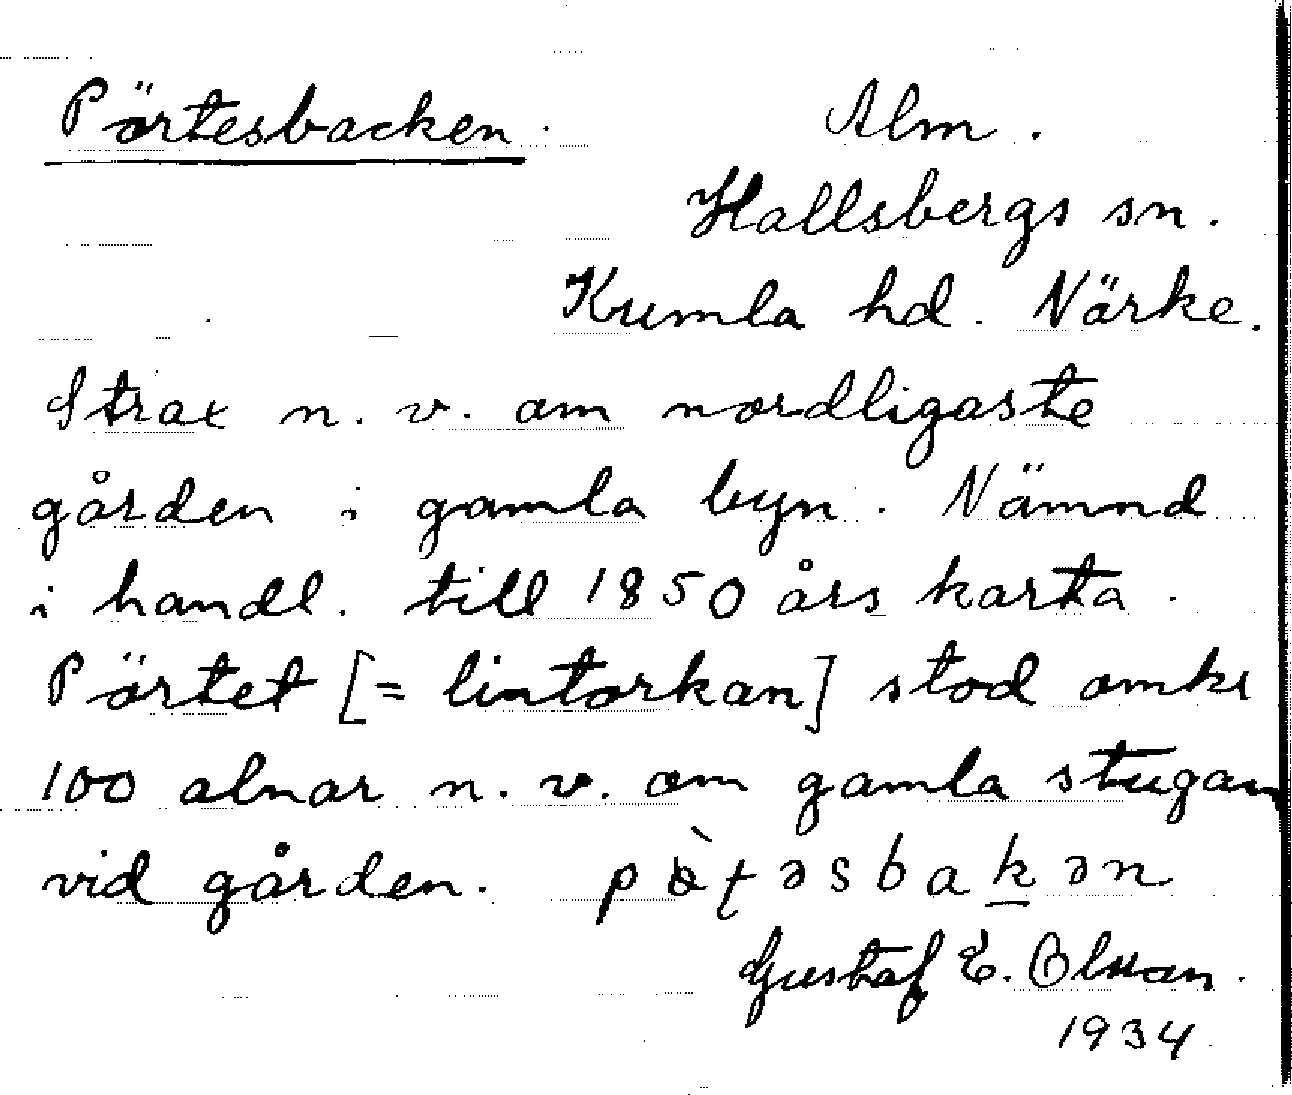 Pörtesbacken. Alm.
Hallsbergs sn.
Kumla hd. Närke.
Strax n. v. om nordligaste
gården i gamla byn. Nämnd
i handl. till 1850 års karta.
Pörtet [= lintorkan] stod omkr
100 alnar n. v. om gamla stugan
vid gården.
Gustaf E. Olsson.
1934